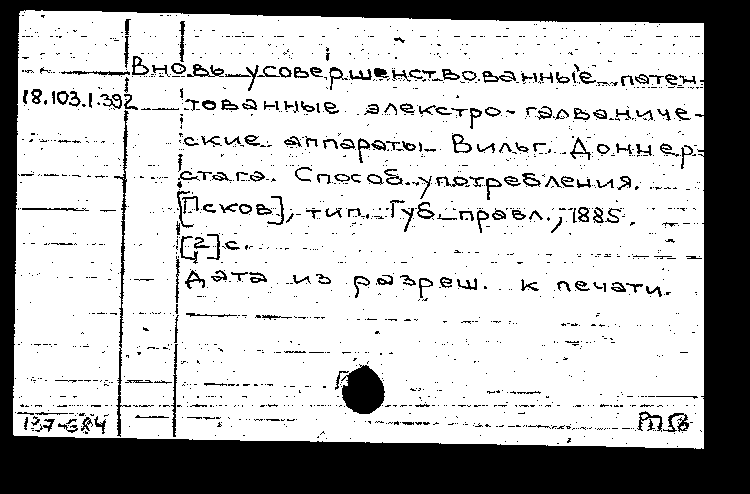 Вновь усовершенствованные патен-
18.103.1.392 тованные электро-гальваниче-
ские аппараты Вильг. Доннер-
стага. Способ употребления.
[Псков], тип. Губ. правл., 1885.
[2] с.
Дата из разреш. к печати.
137-684 РП5В